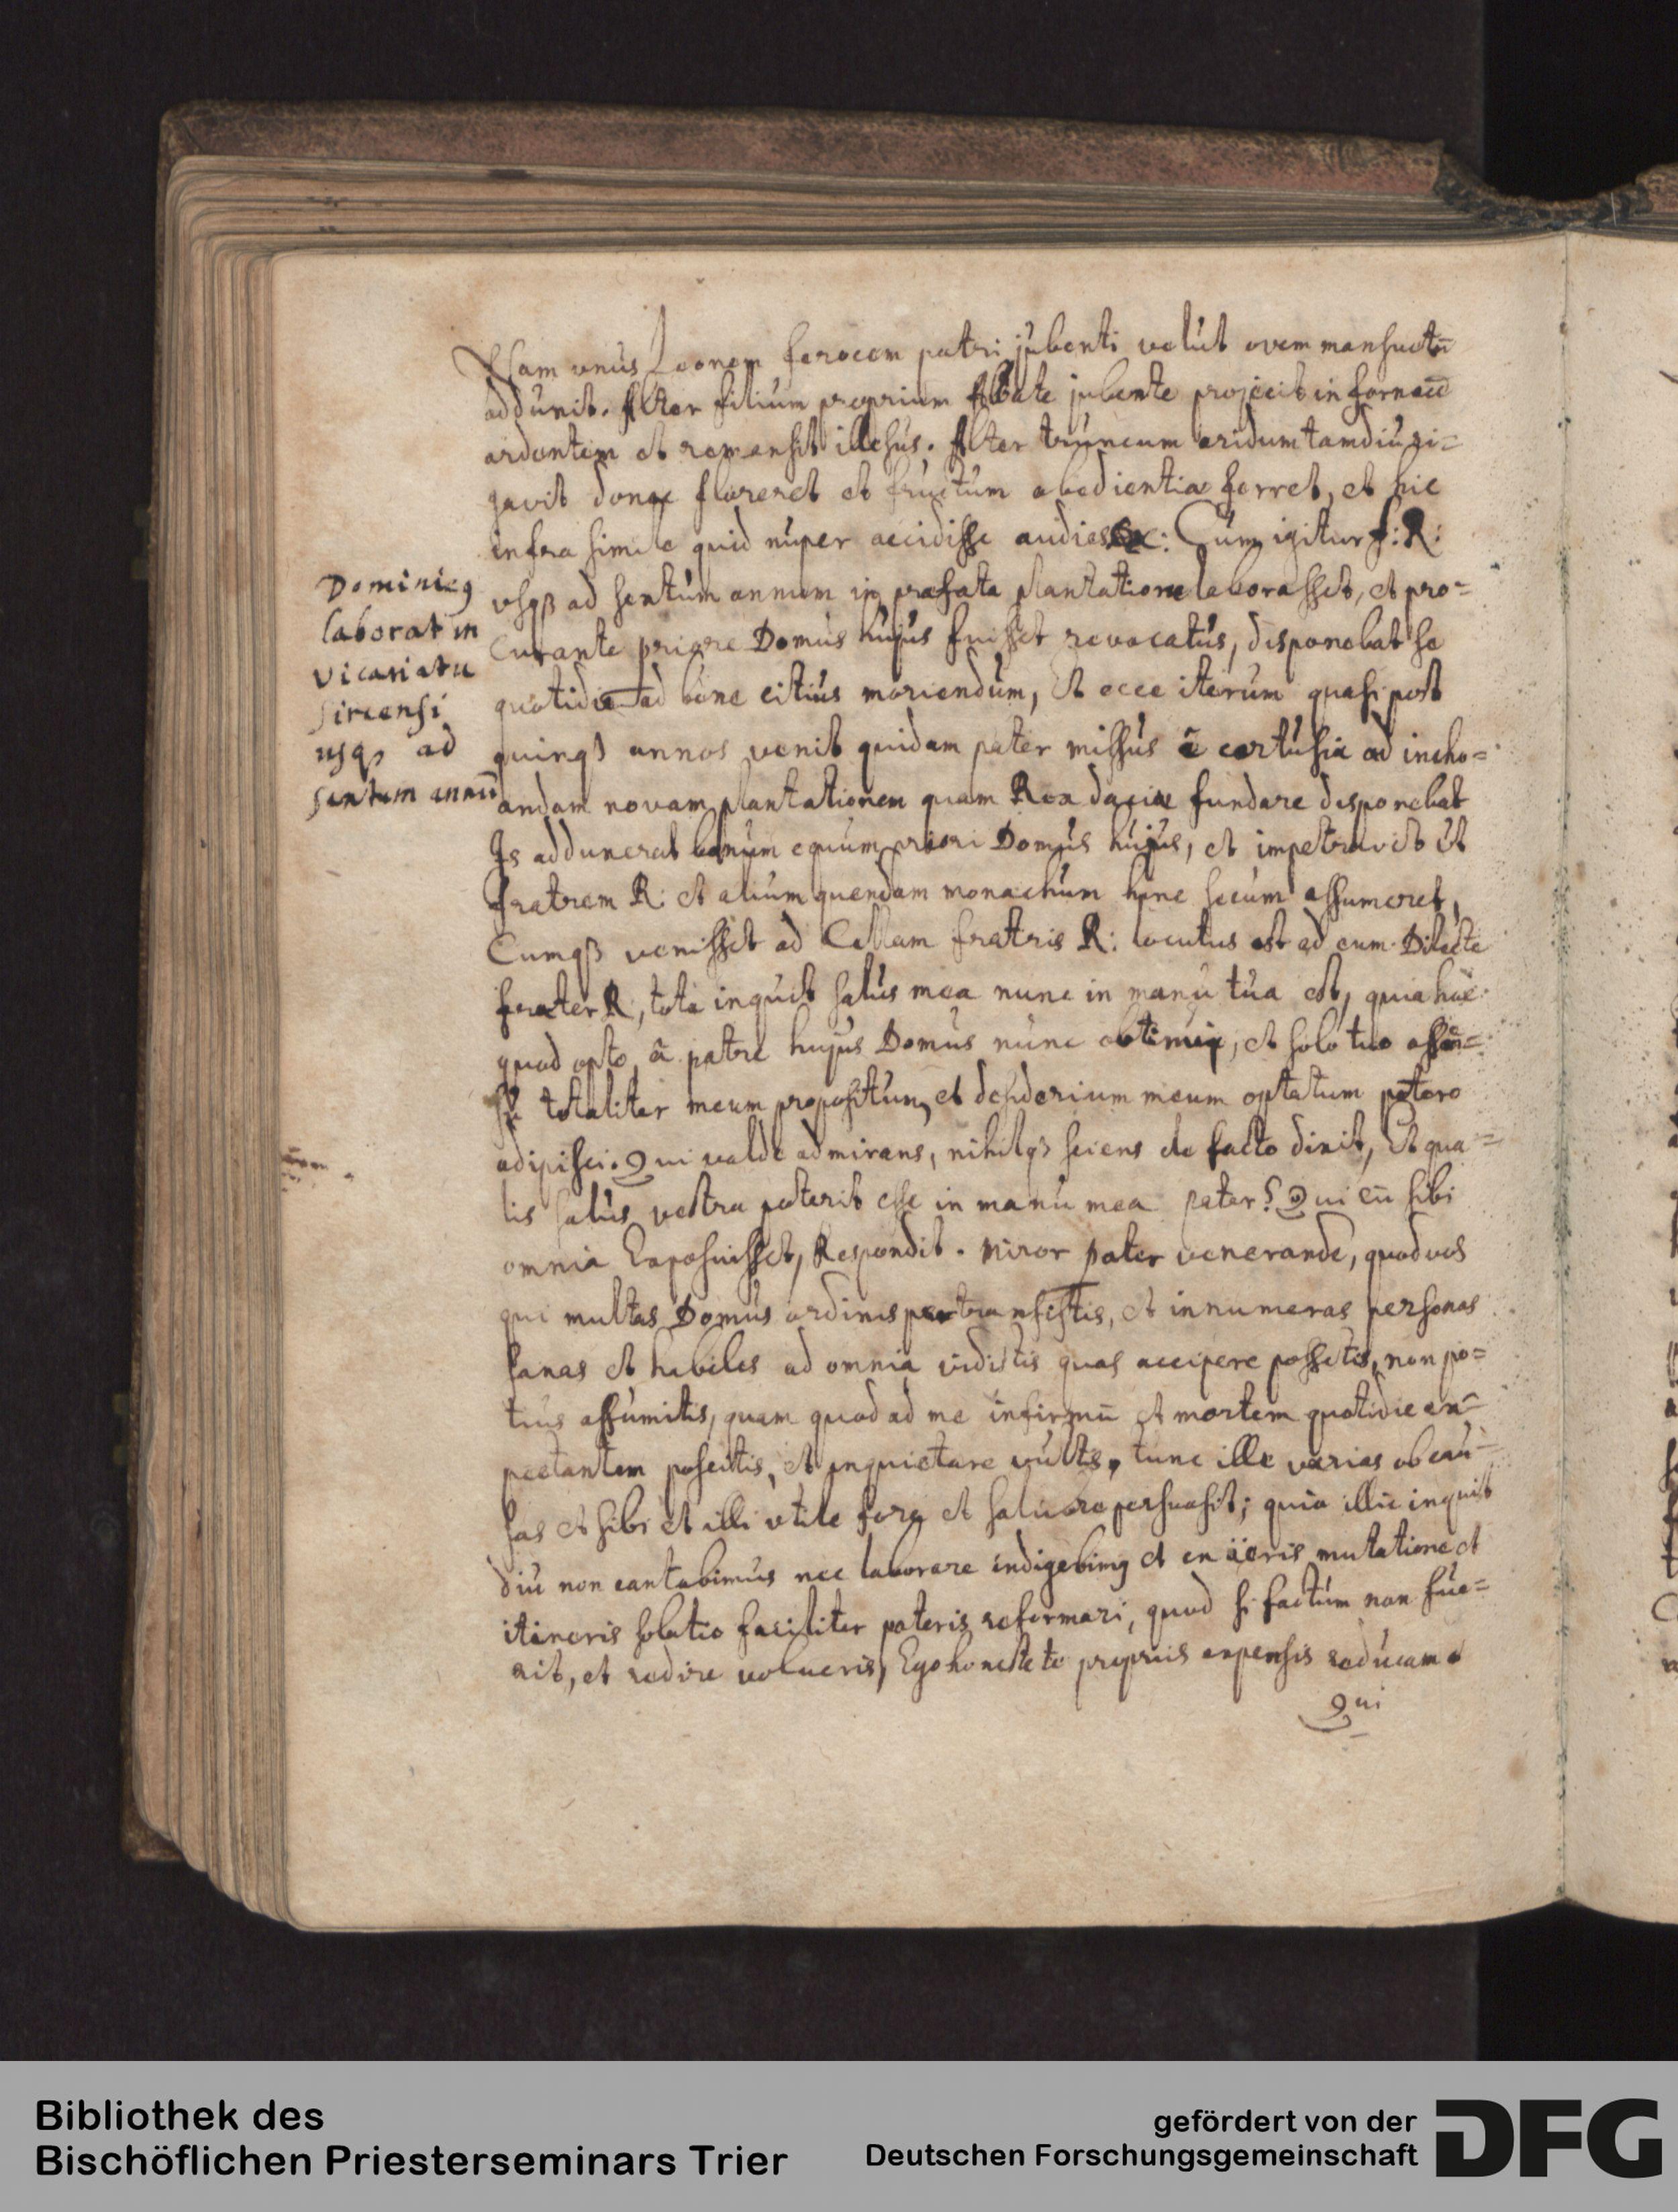 Nam unus Leonem ferocem patri jubenti velut ovem mansuetū
adduxit. Alter filium proprium Abbate jubente projecit in fornacē
ardentem et remansit illesus. Alter truncum aridum tamdiu ri=
gavit donec floreret et fructum obedientiæ ferret, et hic
infra simile quid nuper accidisse audies. Cum igitur f: R:
usq3 ad sextum annum in præfata plantatione laborasset, et pro=
curante priore Domus hujus fuisset revocatus, disponebat se
quotidie ad bene citius moriendum, Et ecce iterum quasi post
Dominicq
laborat in
vicariatu
sircensi
usq3 ad
sextum annū
quinq3 annos venit quidam pater missus ā cartusia ad incho=
andam novam plantationem quam Rex daciæ fundare disponebat
Is adduxerat bonum equum priori Domus hujus, et impetravit ut
fratrem R: et alium quendam monachum hinc secum assumeret,
Cumq3 venisset ad Cellam fratris R: locutus est ad eum. Dilecte
frater R, tota inquit salus mea nunc in manu tua est, quia hoc
quod opto, ā patre hujus Domus nunc obtinui, et solo tuo assen=
su totaliter meum propositum et desiderium meum optatum potero
adipisci. Qui valde admirans, nihilq3 sciens de facto dixit, Et qua=
lis salus vestra poterit esse in manu mea pater? Qui cū sibi
omnia Exposuisset, Respondit. Miror pater venerande, quod vos
qui multas Domus ordinis pertransistis, et innumeras personas
sanas et habiles ad omnia vidistis quas accipere possetis, non po=
tius assumitis, quam quod ad me infirmū et mortem quotidie ex=
pectantem poscitis, et inquietare vultis. tunc ille varias ob cau=
sas et sibi et illi utile fore et salubre persuasit; quia illic inquit
diu non cantabimus nec laborare indigebimq et ex aëris mutatione et
itineris solatio faciliter poteris reformari, quod si factum non fue=
rit, et redire volueris, Ego honeste te propriis expensis reducam.
Qui
Bibliothek des
Bischöflichen Priesterseminars Trier
gefördert von der
Deutschen Forschungsgemeinschaft
DFG